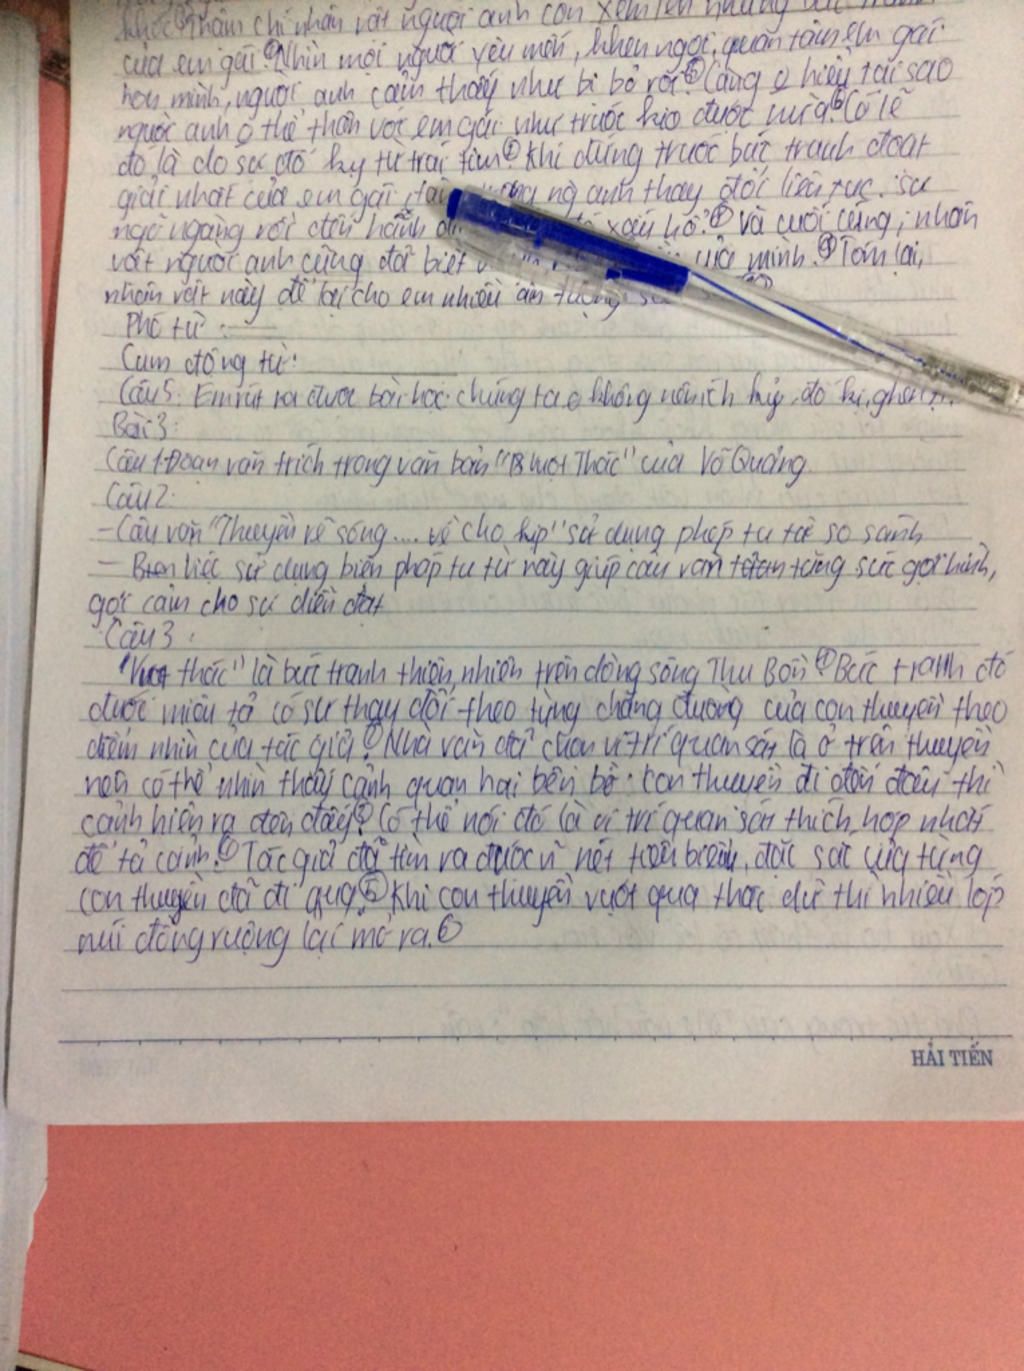 khóc Thậm chí nhân vật người anh còn xem lén những bức tranh
của em gái. Nhìn mọi người yêu mến, khen ngợi, quan tâm em gái
hơn mình, người anh cảm thấy như bị bỏ rơi. ⑤ Càng o hiểu tại sao
người anh o thể thân với em gái như trước kia được nữa. ⑥ Có lẽ
đó là do sự đố kỵ từ trái tim. ⑦ Khi đứng trước bức tranh đoạt
giải nhất của em gái, ng anh thay đổi liên tục. sự
ngỡ ngàng rồi đến hãnh xấu hổ. ⑧ Và cuối cùng, nhân
vật người anh cũng đã biết của mình. ⑨ Tóm lại,
nhân vật này để lại cho em nhiều ấn tượng
Phó từ:
Cụm động từ:
Câu 5: Em rút ra được bài học: chúng ta o không nên ích kỷ, đố kị, ghen
Bài 3:
Câu 1: Đoạn văn trích trong văn bản " Vượt Thác" của Võ Quảng
Câu 2:
- Câu văn "Thuyền rẽ sóng.... về cho kịp" sử dụng phép tu từ so sánh
- việc sử dụng biện pháp tu từ này giúp câu văn tăng sức gợi hình,
gợi cảm cho sự diễn đạt
Câu 3:
"Vượt thác" là bức tranh thiên nhiên trên dòng sông Thu Bồn. ① Bức tranh đó
được miêu tả có sự thay đổi theo từng chặng đường của con thuyền theo
điểm nhìn của tác giả. ② Nhà văn đã chọn vị trí quan sát là ở trên thuyền
nên có thể nhìn thấy cảnh quan hai bên bờ. con thuyền đi đến đâu thì
cảnh hiện ra đến đấy. ③ Có thể nói đó là vị trí quan sát thích hợp nhất
để tả cảnh. ④ Tác giả đã tìm ra được n nét tiêu biểu, đặc sắc của từng
con thuyền đã đi qua. ⑤ Khi con thuyền vượt qua thác dữ thì nhiều lớp
núi đồng ruộng lại mở ra. ⑥
HẢI TIẾN